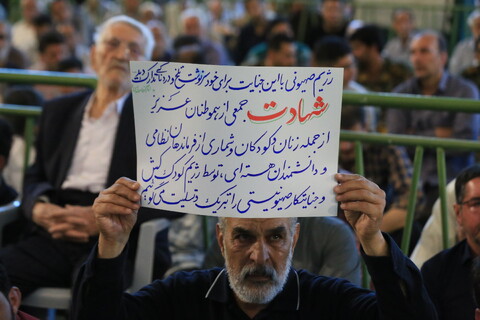 رژیم صهیونی با این جنایت برای خود سرنوشت تلخ و دردناکی تدارک دید
شهادت جمعی از هموطنان عزیز
از جمله زنان و کودکان و شماری از فرماندهان نظامی
و دانشمندان هسته‌ای، توسط رژیم کودک کش
و جنایتکار صهیونیستی را تبریک و تسلیت می‌گوئیم